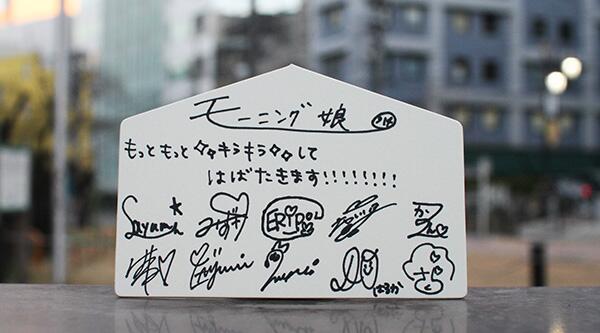 モーニング娘 '14
もっともっと☆☆キラキラ☆☆して
はばたきます!!!!!!!!
Sayumi みずき ERIPON
Ayumi はるか